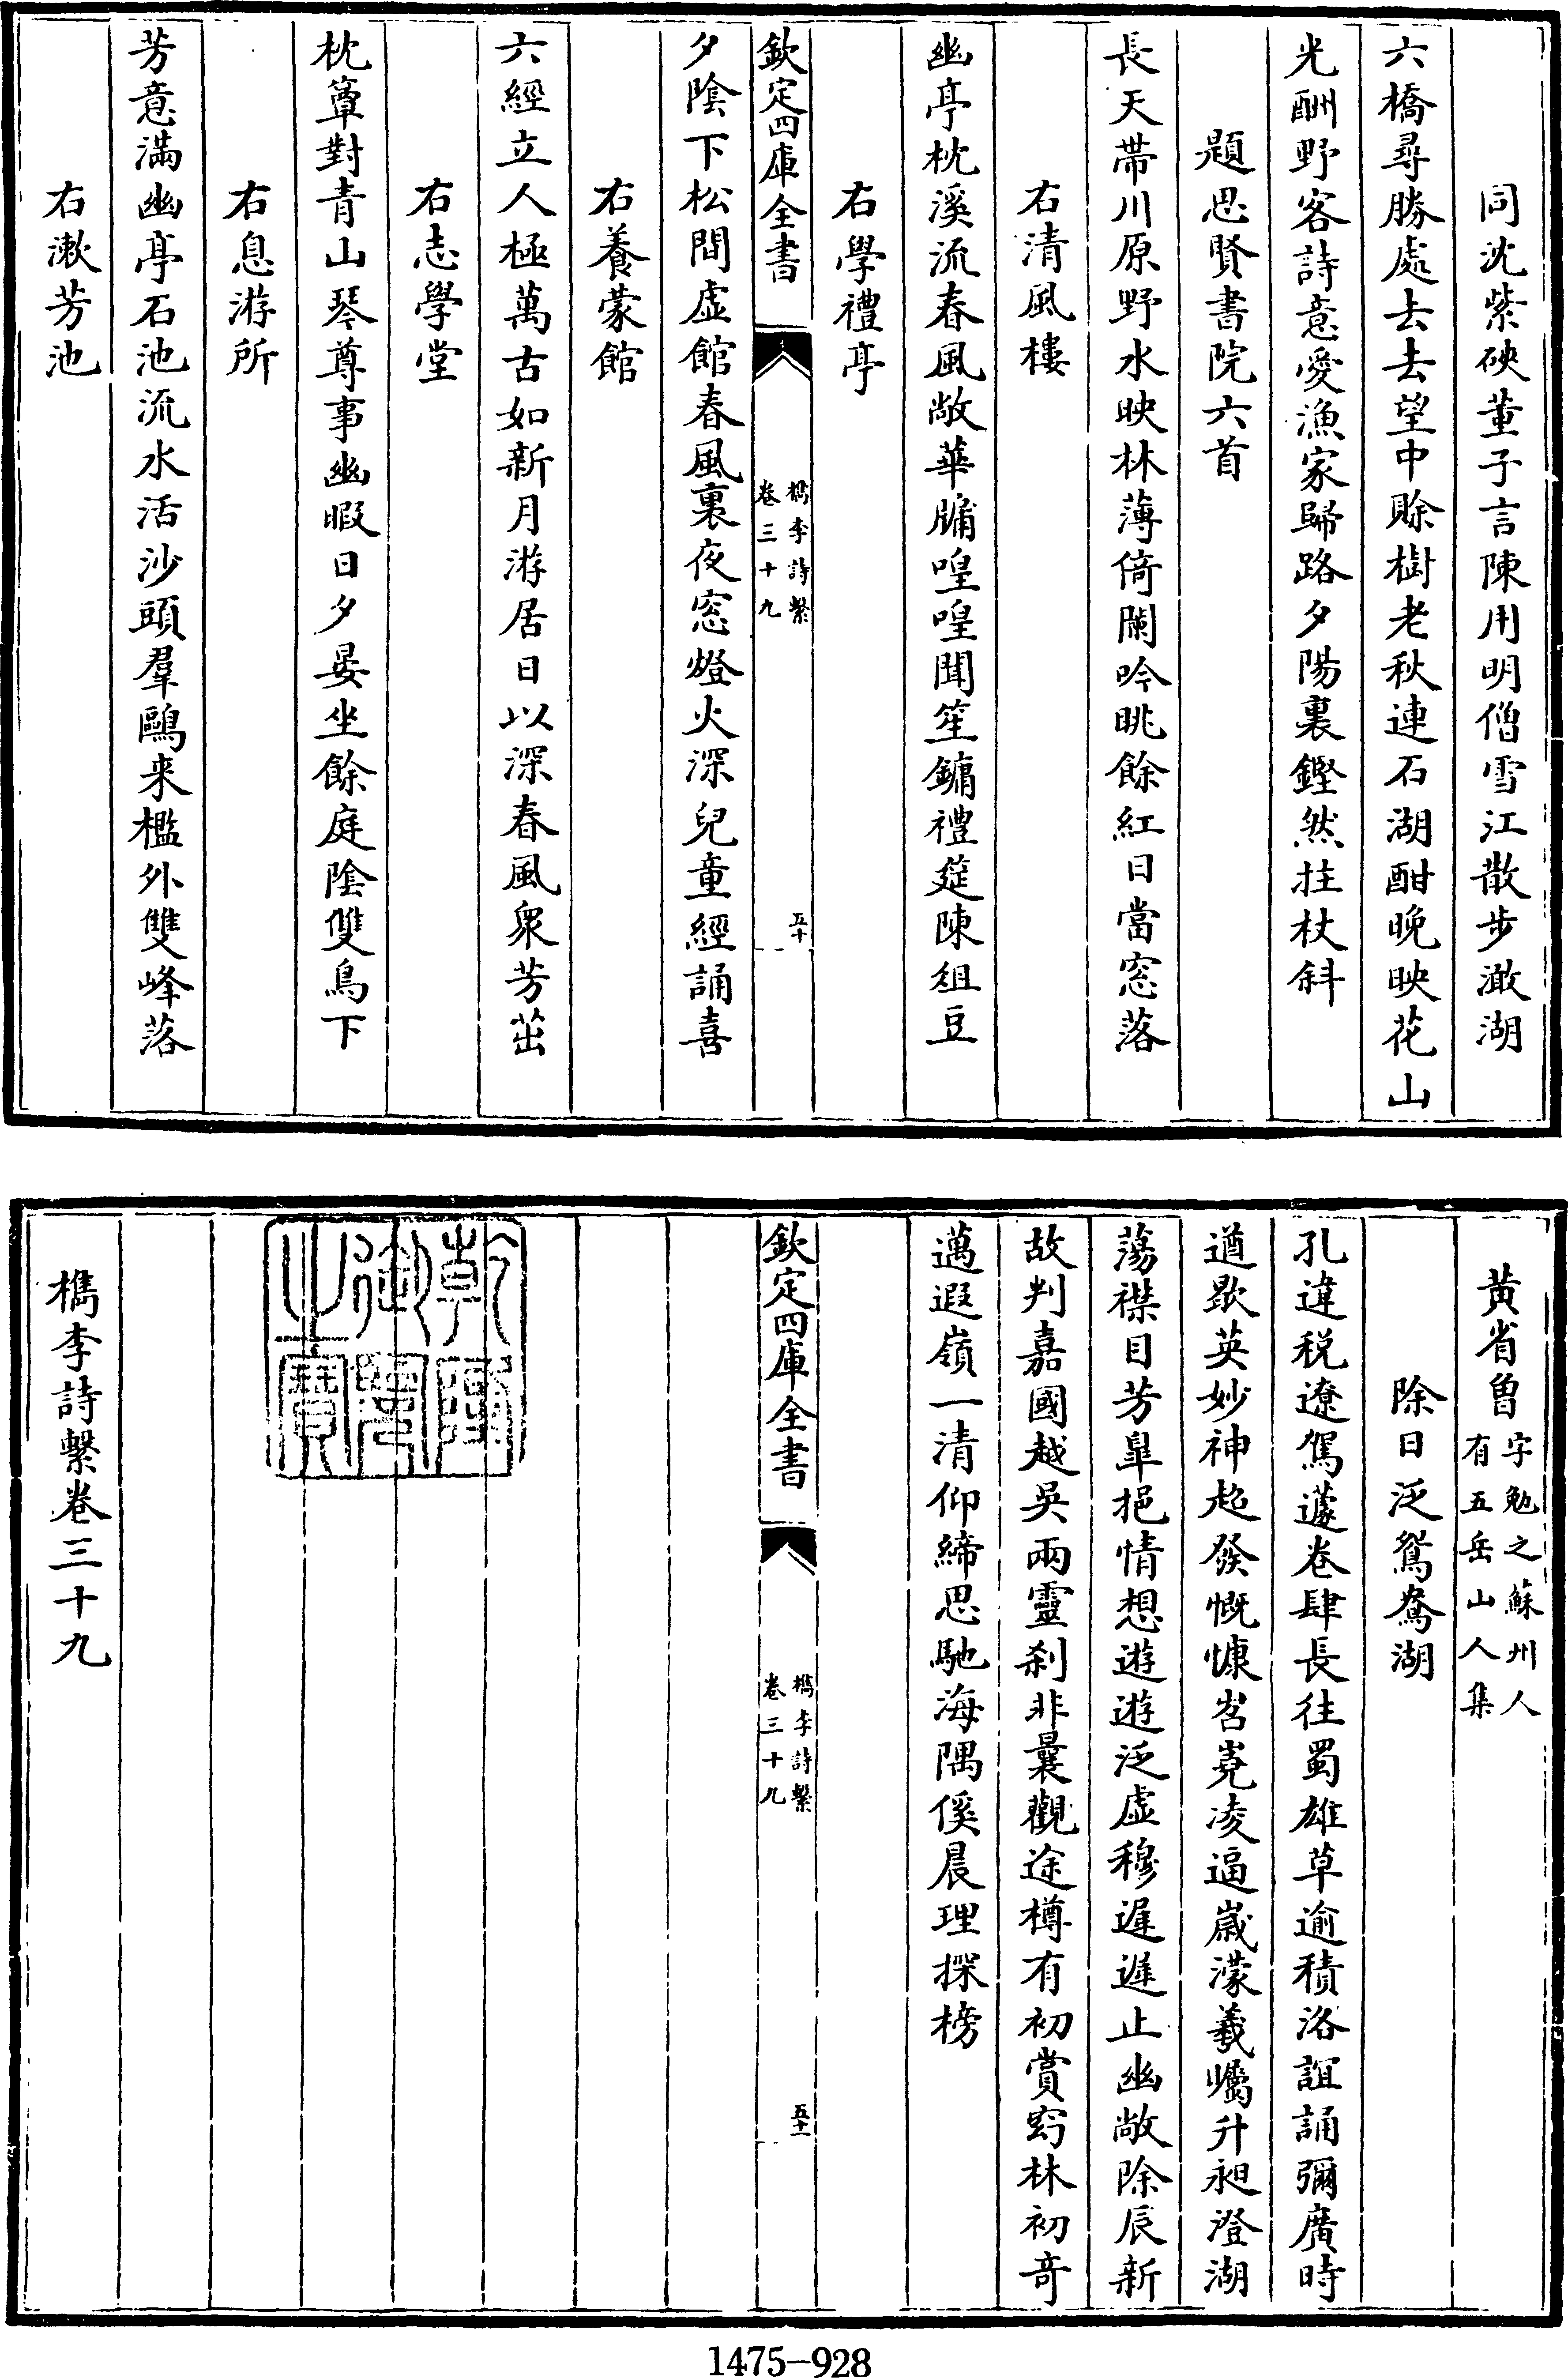 同沈紫硤董子言陳用明僧雪江散步澉湖
六橋尋勝處去去望中賒樹老秋連石湖酣晚映花山
光酬野客詩意愛漁家歸路夕陽裏鏗然拄杖斜
題思賢書院六首
長天帶川原野水映林薄倚闌吟眺餘紅日當窓落
右清風樓
幽亭枕溪流春風敞華牗喤喤聞笙鏞禮筵陳俎豆
右學禮亭
欽定四庫全書
檇李詩繫
卷三十九
五十
夕陰下松間虛館春風裏夜窓燈火深兒童經誦喜
右養蒙館
六經立人極萬古如新月游居日以深春風衆芳茁
右志學堂
枕簟對青山琴尊事幽暇日夕晏坐餘庭陰雙鳥下
右息游所
芳意滿幽亭石池流水活沙頭羣鷗来檻外雙峰落
右漱芳池
黃省曾
字勉之蘇州人
有五岳山人集
除日泛鴛鴦湖
孔違税遼駕蘧卷肆長往蜀雄草逾積洛誼誦彌廣時
遒歇英妙神超發慨慷岧嵪凌逼嵗濛羲曯升昶澄湖
蕩襟目芳臯挹情想遊遊泛虛穆遲遲止幽敞除辰新
故判嘉國越吳兩靈刹非曩觀途樽有初賞窈林初奇
邁遐嶺一清仰締思馳海隅傒晨理探榜
欽定四庫全書
檇李詩繫
卷三十九
五十一
乾隆
御覽
之寶
檇李詩繫卷三十九
1475-928